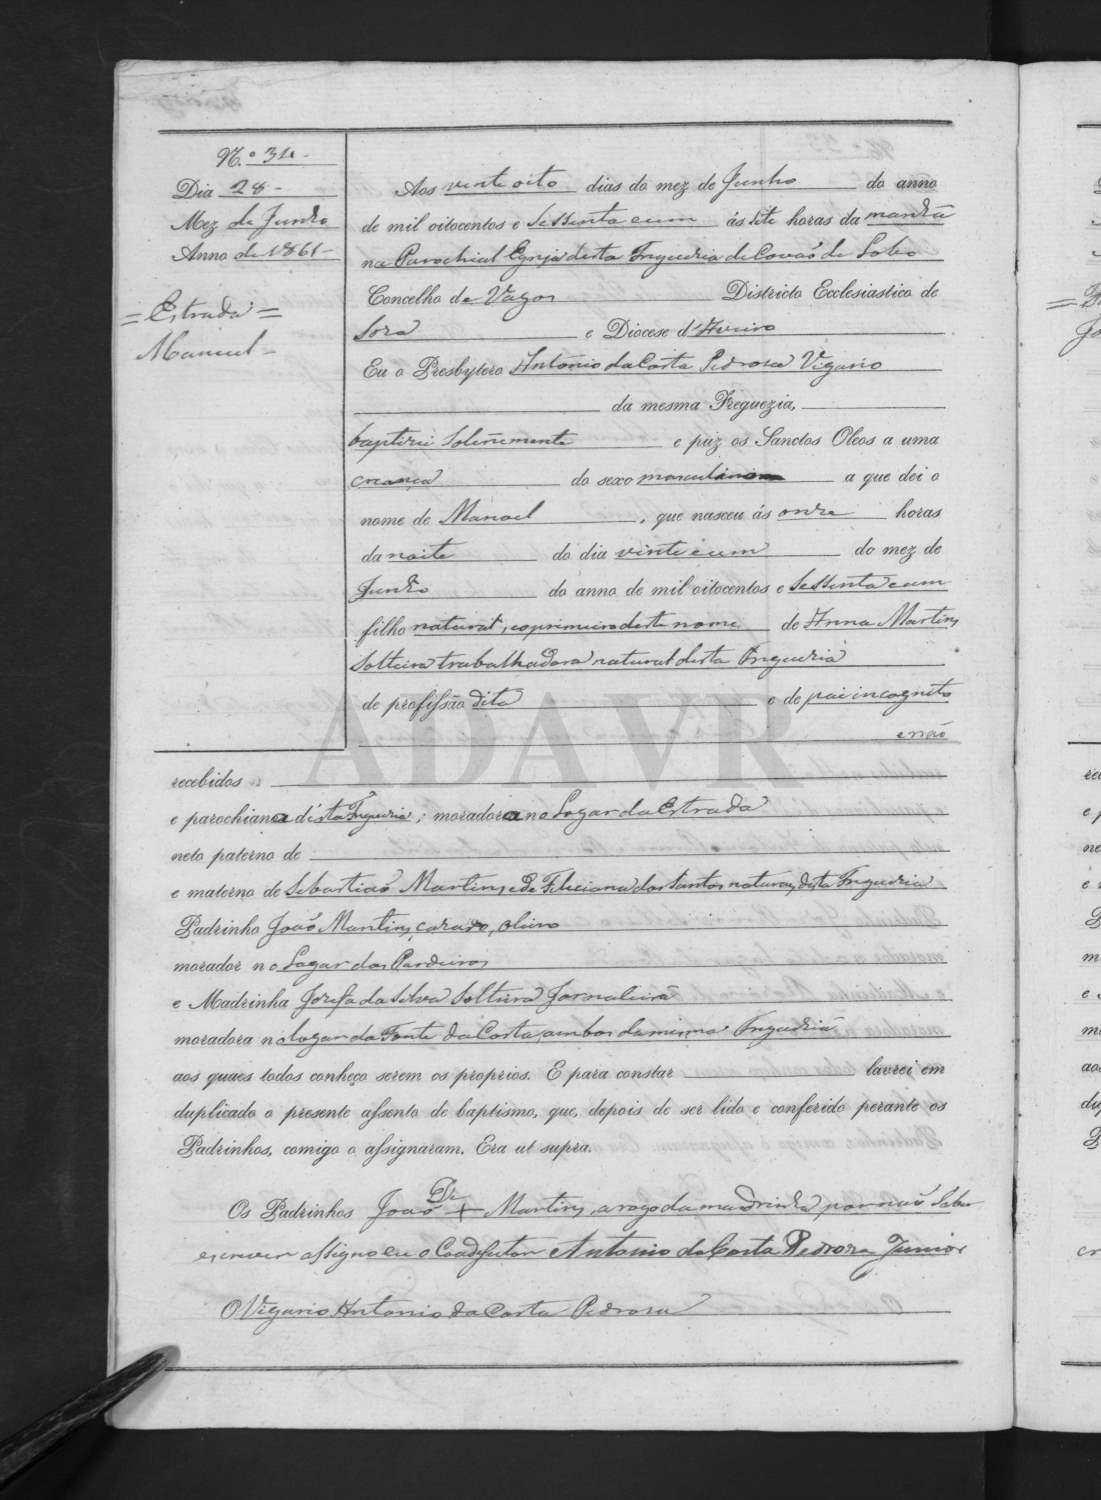 N.º 34
Dia 28
Mez de Junho
Anno de 1861
= Estrada =
Manuel
Aos vinte oito dias do mez de Junho do anno
de mil oitocentos e sessenta e um ás sete horas da manhã
na Parochial Egreja desta Freguezia de Covaõ do Lobo
Concelho de Vagos Districto Ecclesiastico de
Soza e Diocese d'Aveiro
Eu o Presbytero Antonio da Costa Pedrosa Vigario
da mesma Freguezia,
baptizei Solenemente e puz os Sanctos Oleos a uma
creança do sexo masculino a que dei o
nome de Manoel, que nasceu ás onze horas
da noite do dia vinte e um do mez de
Junho do anno de mil oitocentos e sessenta e um
filho natural, e o primeiro deste nome de Anna Martins
Solteira trabalhadora natural desta Freguezia
de profissão dita e de pai incognito
e não
recebidos
e parochiana d'esta Freguezia; moradora no Logar da Estrada
neto paterno de
e materno de Sebastiaõ Martins e de Feleciana dos Santos naturaes desta Freguezia
Padrinho Joaõ Martins, cazado,
morador no Logar dos Pardeiros
e Madrinha Josefa da Silva Solteira Jornaleira
moradora no logar da Fonte da Costa, ambos da mesma Freguezia
aos quaes todos conheço serem os proprios. E para constar lavrei em
duplicado o presente assento de baptismo, que, depois de ser lido e conferido perante os
Padrinhos, comigo o assignaram. Era ut supra.
Os Padrinhos Joaõ De + Martins, a rogo da madrinha por naõ saber
escrever assigno eu o Coadjutor Antonio da Costa Pedroza Junior
O Vigario Antonio da Costa Pedrosa
ADAVR